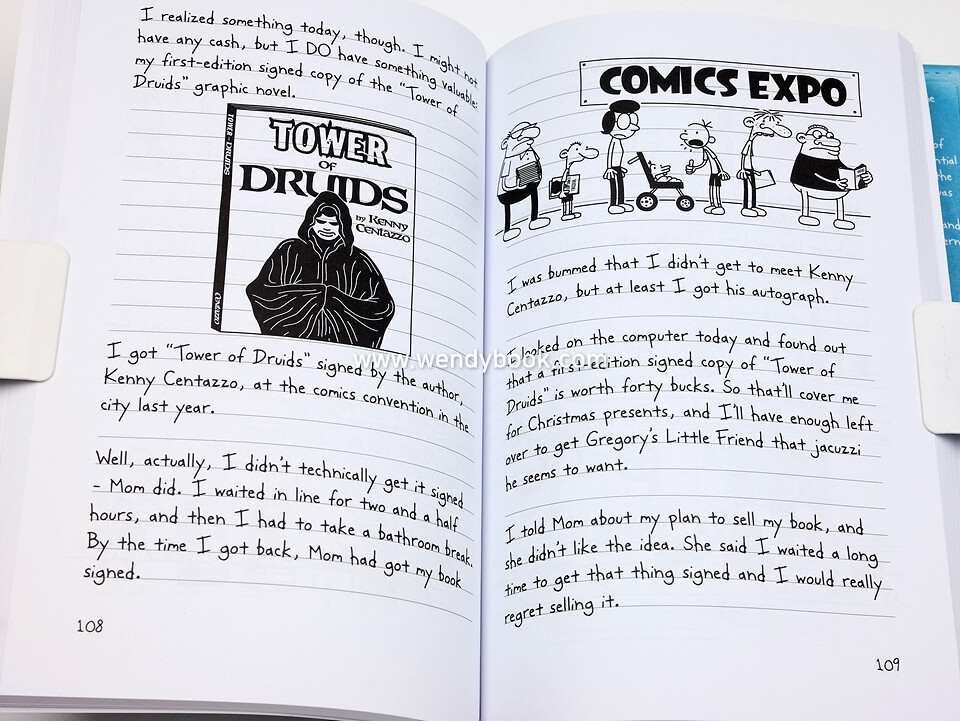 I realized something today, though. I might not
have any cash, but I DO have something valuable:
my first-edition signed copy of the "Tower of
Druids" graphic novel.
TOWER of DRUIDS
Centazzo
TOWER
OF
DRUIDS
by Kenny
Centazzo
I got "Tower of Druids" signed by the author,
Kenny Centazzo, at the comics convention in the
city last year.
Well, actually, I didn't technically get it signed
- Mom did. I waited in line for two and a half
hours, and then I had to take a bathroom break.
By the time I got back, Mom had got my book
signed.
108
COMICS EXPO
I was bummed that I didn't get to meet Kenny
Centazzo, but at least I got his autograph.
I looked on the computer today and found out
that a first-edition signed copy of "Tower of
Druids" is worth forty bucks. So that'll cover me
for Christmas presents, and I'll have enough left
over to get Gregory's Little Friend that jacuzzi
he seems to want.
I told Mom about my plan to sell my book, and
she didn't like the idea. She said I waited a long
time to get that thing signed and I would really
regret selling it.
109
www.wendybook.com
of
the
was
and